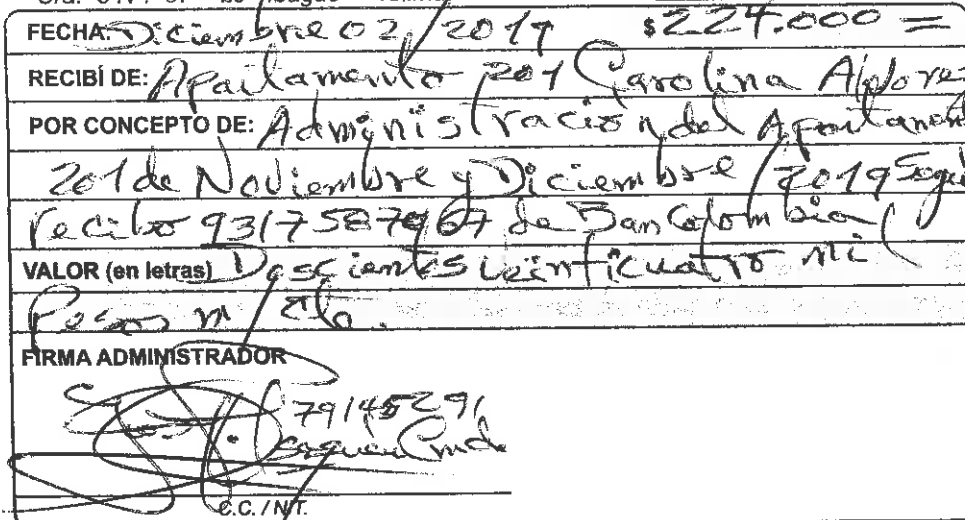 FECHA: Diciembre 02/2019 $224.000=
RECIBÍ DE: Apartamento 201 Carolina
POR CONCEPTO DE: Administración del Apartament
201 de Noviembre y Diciembre /2019 Segú
recibo 9317587967 de Bancolombia
VALOR (en letras) Doscientos Veinticuatro mil
Pesos m/cte.
FIRMA ADMINISTRADOR
79145291
C.C. / NIT.